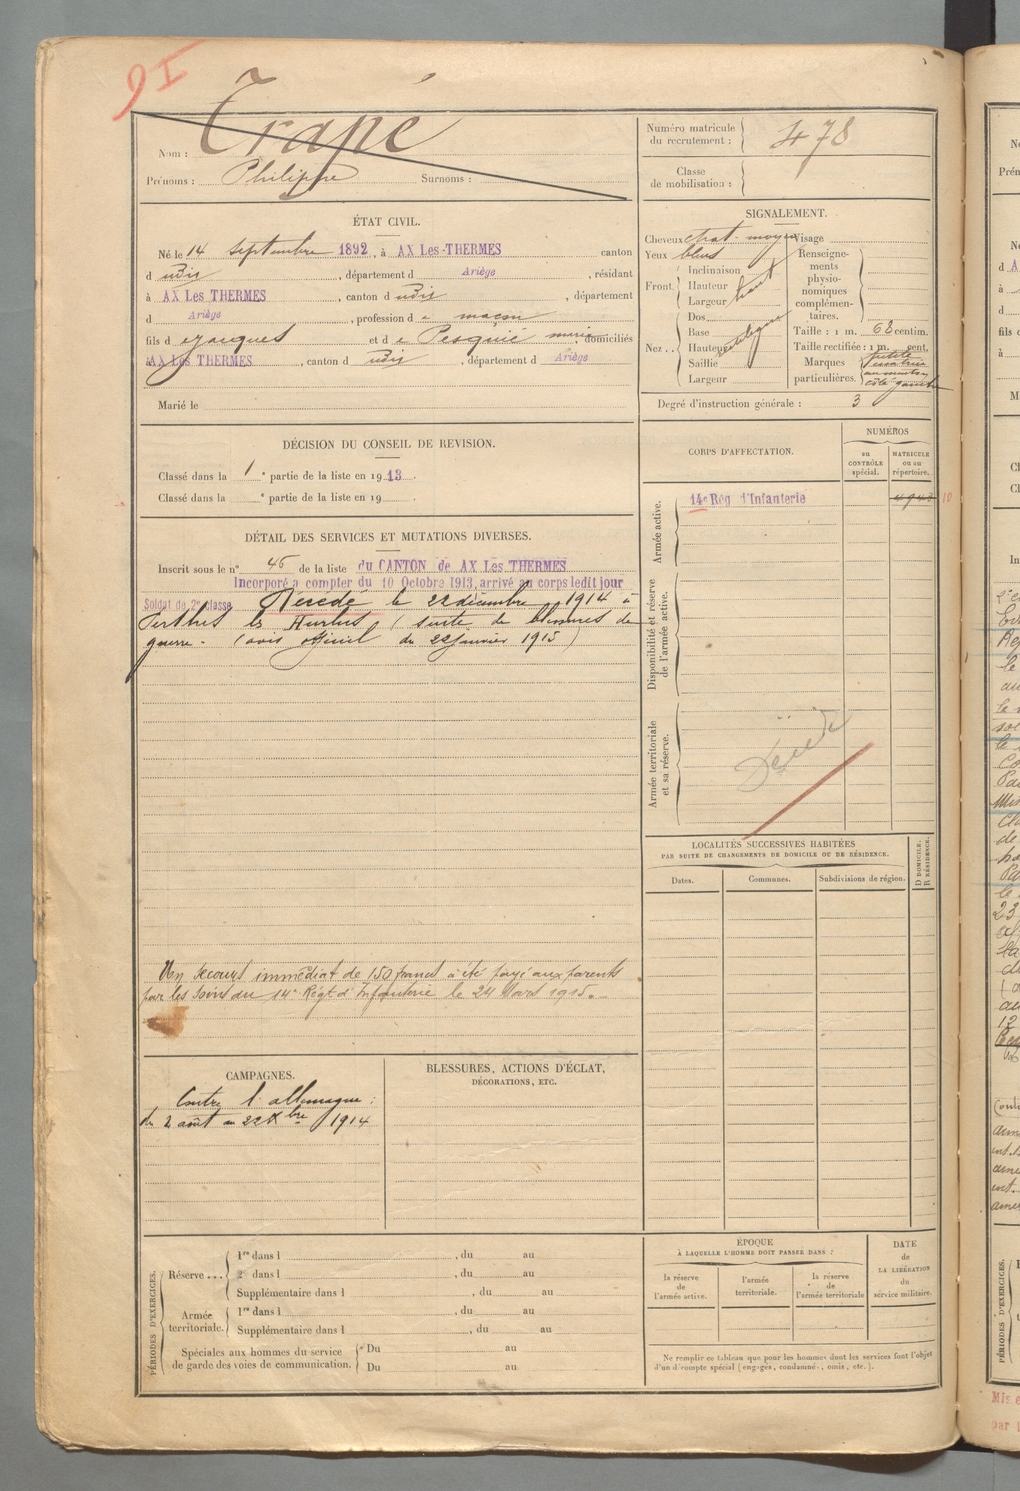 9I
Nom : Trapé
Prénoms : Philippe Surnoms :
Numéro matricule
du recrutement : 478
Classe
de mobilisation :
ÉTAT CIVIL.
Né le 14 Septembre 1892, à AX Les-THERMES canton
d udis, département d Ariège, résidant
à AX Les THERMES, canton d udis, département
d Ariège, profession de maçon
fils d Jacques et de Pesquié Maria, domiciliés
à AX Les THERMES, canton d udis, département d Ariège
Marié le
SIGNALEMENT.
Cheveux chat. moyen Visage
Yeux bleus
Front. Inclinaison
Hauteur haut
Largeur
Nez .. Dos
Base
Hauteur
Saillie
Largeur
Renseigne-
ments
physio-
nomiques
complémen-
taires.
Taille : 1 m. 62 centim.
Taille rectifiée : 1 m. cent.
Marques
particulières. petite
cicatrice
au menton
côté gauche
Degré d'instruction générale : 3
DÉCISION DU CONSEIL DE REVISION.
Classé dans la 1e partie de la liste en 1913.
Classé dans la e partie de la liste en 19 .
CORPS D'AFFECTATION.
NUMÉROS
au
CONTRÔLE
spécial.
MATRICULE
ou au
répertoire.
Armée active.
14e Rég d'Infanterie 4943 10
Disponibilité et réserve
de l'armée active.
Armée territoriale
et sa réserve.
Décédé
DÉTAIL DES SERVICES ET MUTATIONS DIVERSES.
Inscrit sous le n° 46 de la liste du CANTON de AX Les THERMES
Incorporé a compter du 10 Octobre 1913, arrivé au corps ledit jour
Soldat de 2e classe Décédé le 22 décembre 1914 à
Perthes les Hurlus (suite de blessures de
guerre - (avis officiel du 22 Janvier 1915)
Un secours immédiat de 150 francs a été payé aux parents
par les soins du 14e Régt d'Infanterie le 24 Mars 1915.
LOCALITÉS SUCCESSIVES HABITÉES
PAR SUITE DE CHANGEMENTS DE DOMICILE OU DE RÉSIDENCE.
Dates. Communes. Subdivisions de région.
D DOMICILE.
R RÉSIDENCE.
CAMPAGNES.
Contre l'allemagne :
du 2 août au 22 Xbre 1914
BLESSURES, ACTIONS D'ÉCLAT,
DÉCORATIONS, ETC.
PÉRIODES D'EXERCICES.
Réserve ... 1re dans l , du au
2e dans l , du au
Supplémentaire dans l , du au
Armée
territoriale. 1re dans l , du au
Supplémentaire dans l , du au
Spéciales aux hommes du service
de garde des voies de communication. Du au
Du au
ÉPOQUE
À LAQUELLE L'HOMME DOIT PASSER DANS :
la réserve
de
l'armée active.
l'armée
territoriale.
la réserve
de
l'armée territoriale
DATE
de
LA LIBÉRATION
du
service militaire.
Ne remplir ce tableau que pour les hommes dont les services font l'objet
d'un décompte spécial (engagés, condamnés, omis, etc.).